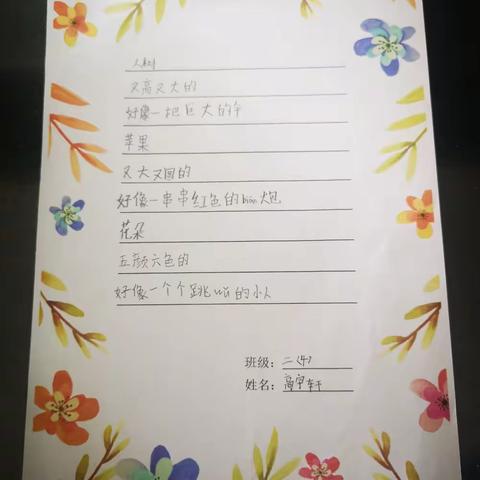 大树
又高又大的
好像一把巨大的伞
苹果
又大又圆的
好像一串串红色的biān炮
花朵
五颜六色的
好像一个个跳wǔ的小人
班级：二（4）
姓名：高宇轩